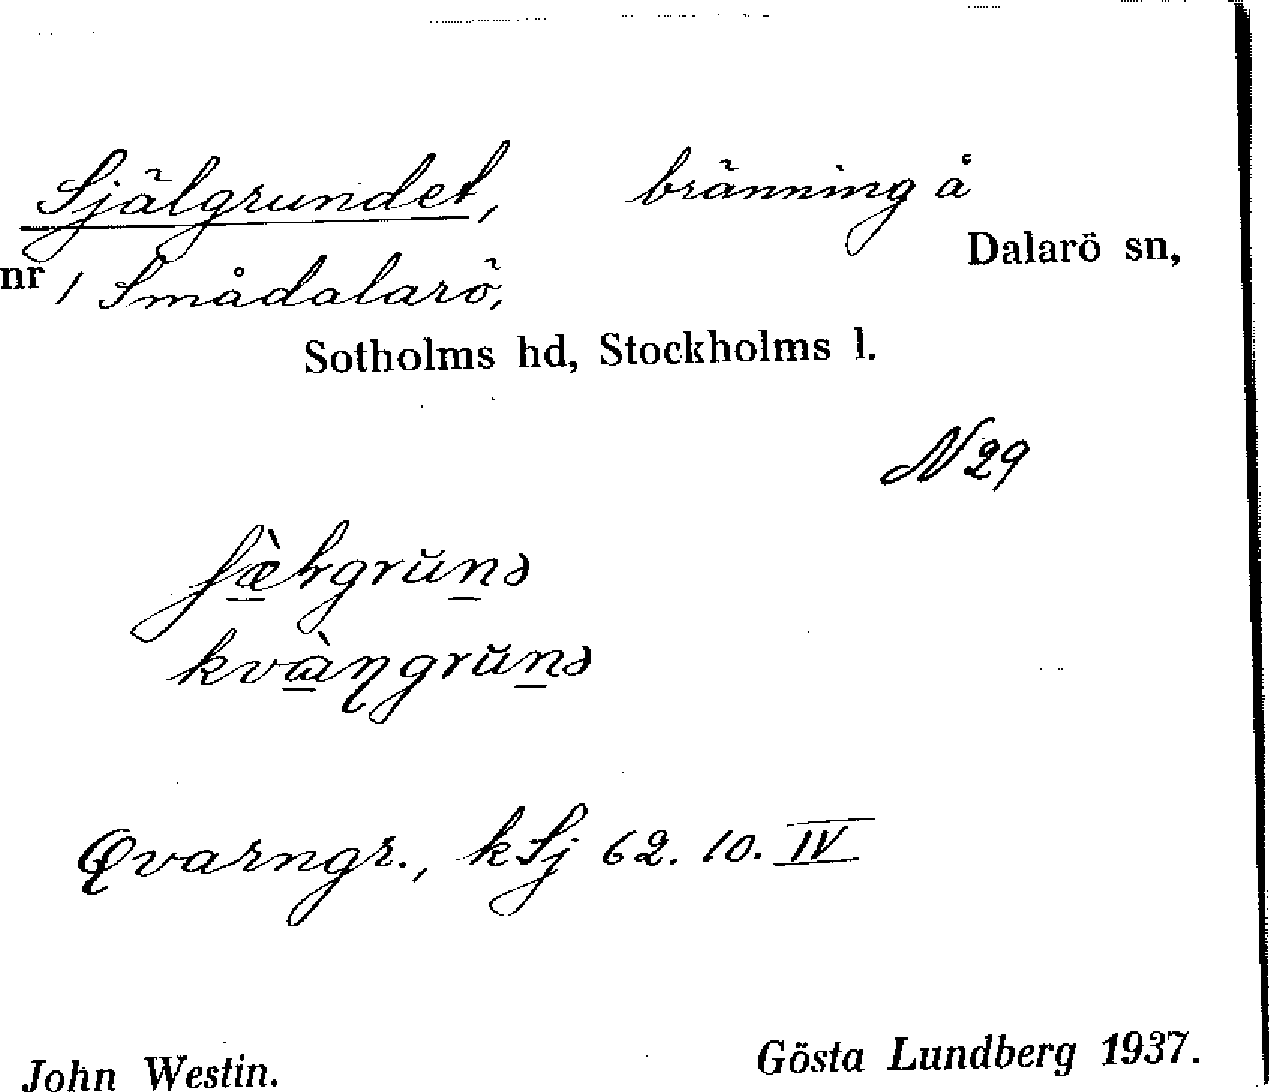 Själgrundet, bränning å
Dalarö sn,
nr 1 Smådalarö,
Sotholms hd, Stockholms l.
N 29
kvàŋgrŭns
Qvarngr., kSj 62. 10. IV
John Westin. Gösta Lundberg 1937.